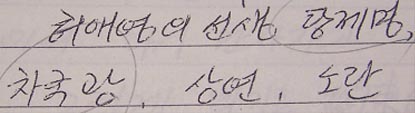 허애영의 선생 당제명,
차국광, 상연, 노란